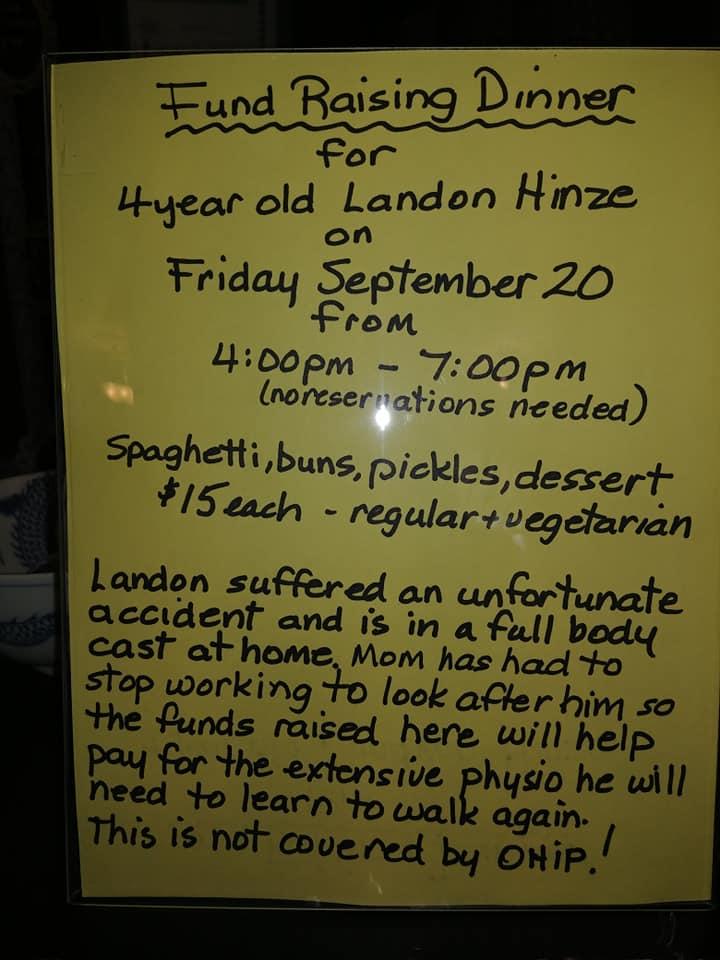 Fund Raising Dinner
for
4 year old Landon Hinze
on
Friday September 20
from
4:00pm - 7:00pm
(no reservations needed)
Spaghetti, buns, pickles, dessert
$15 each - regular + vegetarian
Landon suffered an unfortunate
accident and is in a full body
cast at home. Mom has had to
stop working to look after him so
the funds raised here will help
pay for the extensive physio he will
need to learn to walk again.
This is not covered by OHIP.!